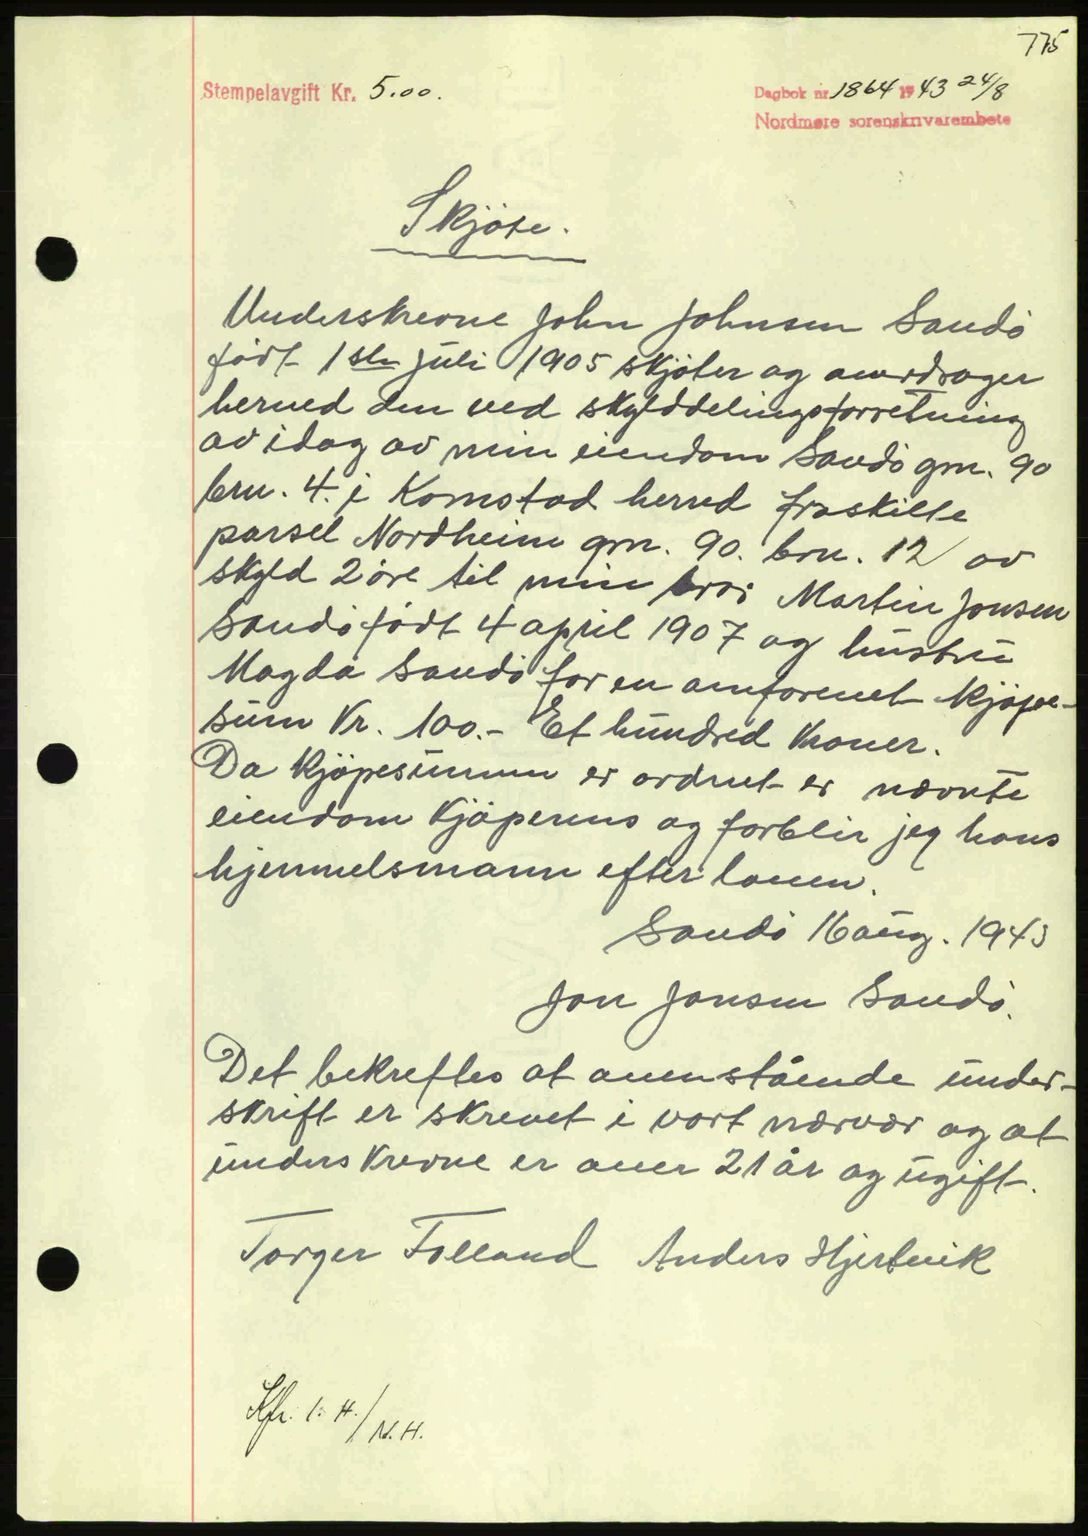 775
Stempelavgift Kr. 5.00.
Dagbok nr. 1864 1943 24/8
Nordmøre sorenskriverembete
Skjöte.
Underskrevne John Johnsen Sandö
födt 1ste juli 1905 skjöter og overdrager
herved den ved skylddelingsforretning
av idag av min eiendom Sandö grn. 90
brn. 4. i Kornstad herred fraskilte
parsel Nordheim grn. 90. brn. 12 av
skyld 2 öre til min bror Martin Jonsen
Sandö födt 4 april 1907 og hustru
Magda Sandö for en omforenet kjöpe-
sum Kr. 100.- Et hundred kroner.
Da kjöpesummen er ordnet er nævnte
eiendom kjöperens og forblir jeg hans
hjemmelsmann efter loven.
Sandö 16 aug. 1943
Jon Jonsen Sandö.
Det bekreftes at ovenstående under-
skrift er skrevet i vort nærvær og at
underskrevne er over 21 år og ugift.
Torger Folland Anders Hjertvik
Kfr. 1. H./N.H.